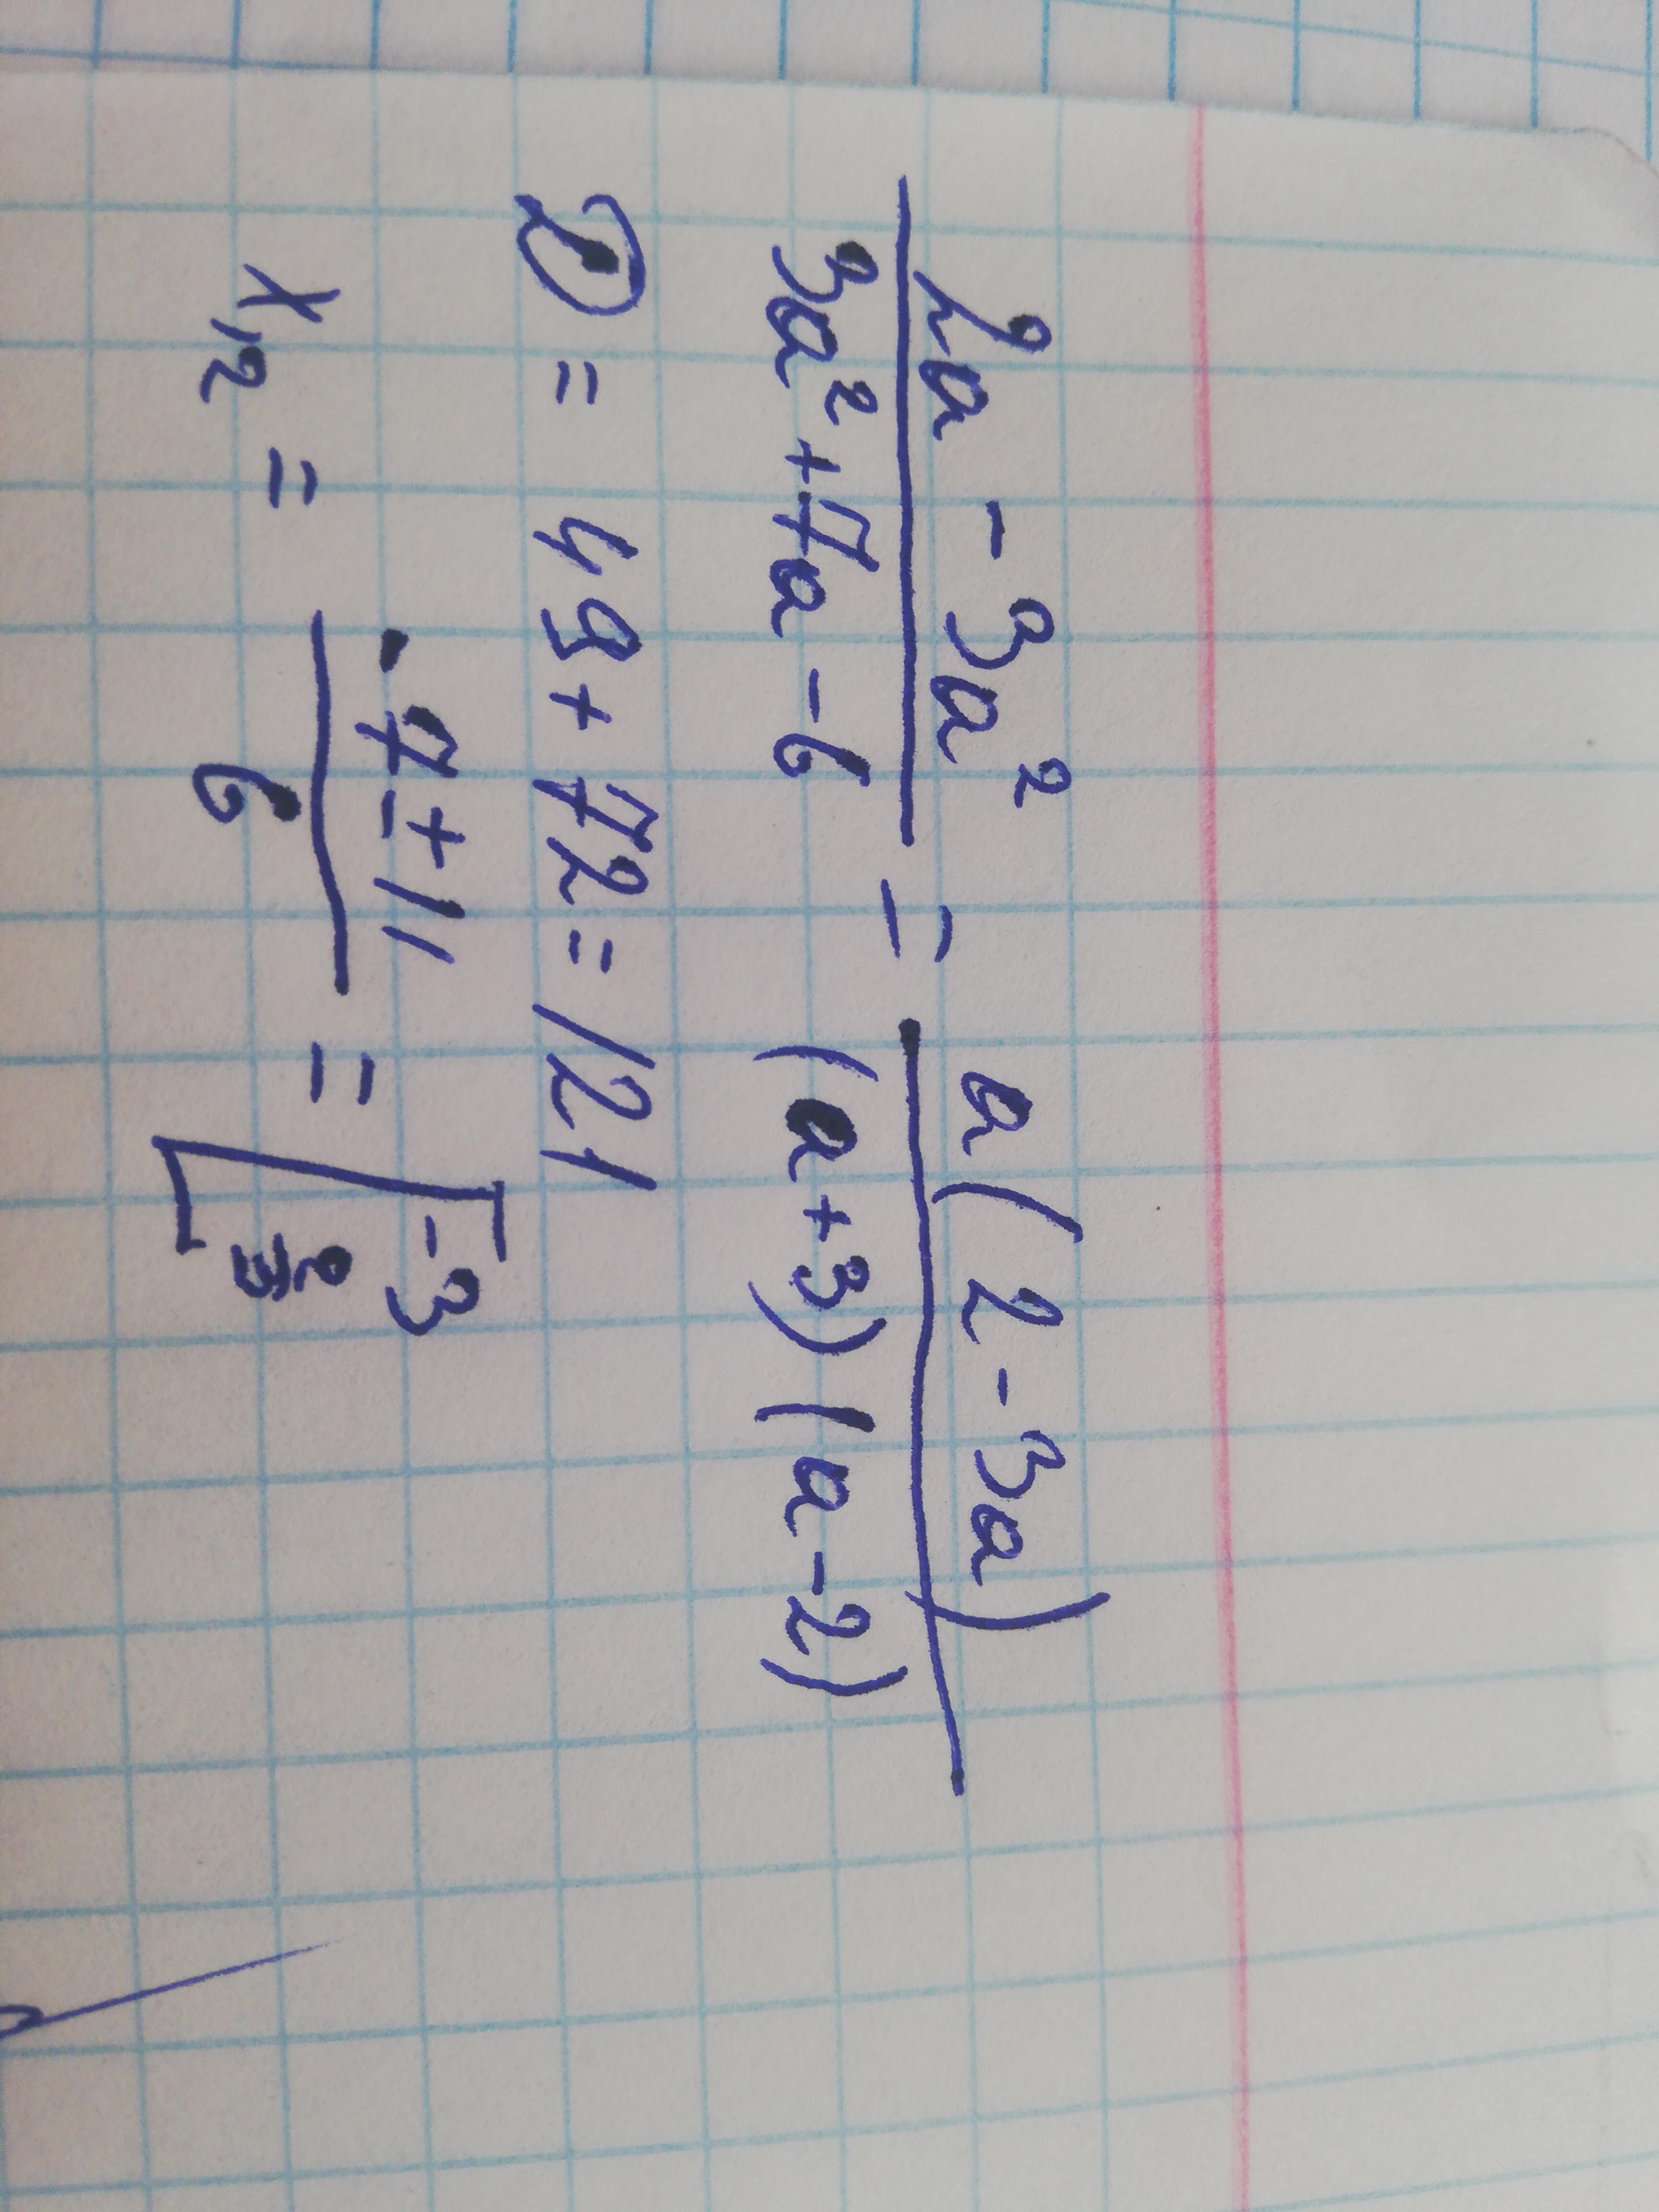 (2a - 3a²)/(3a² + 7a - 6) = a(2 - 3a)/((a + 3)(a - 2))
D = 49 + 72 = 121
x₁,₂ = (-7 ± 11)/6 = [-3; 2/3